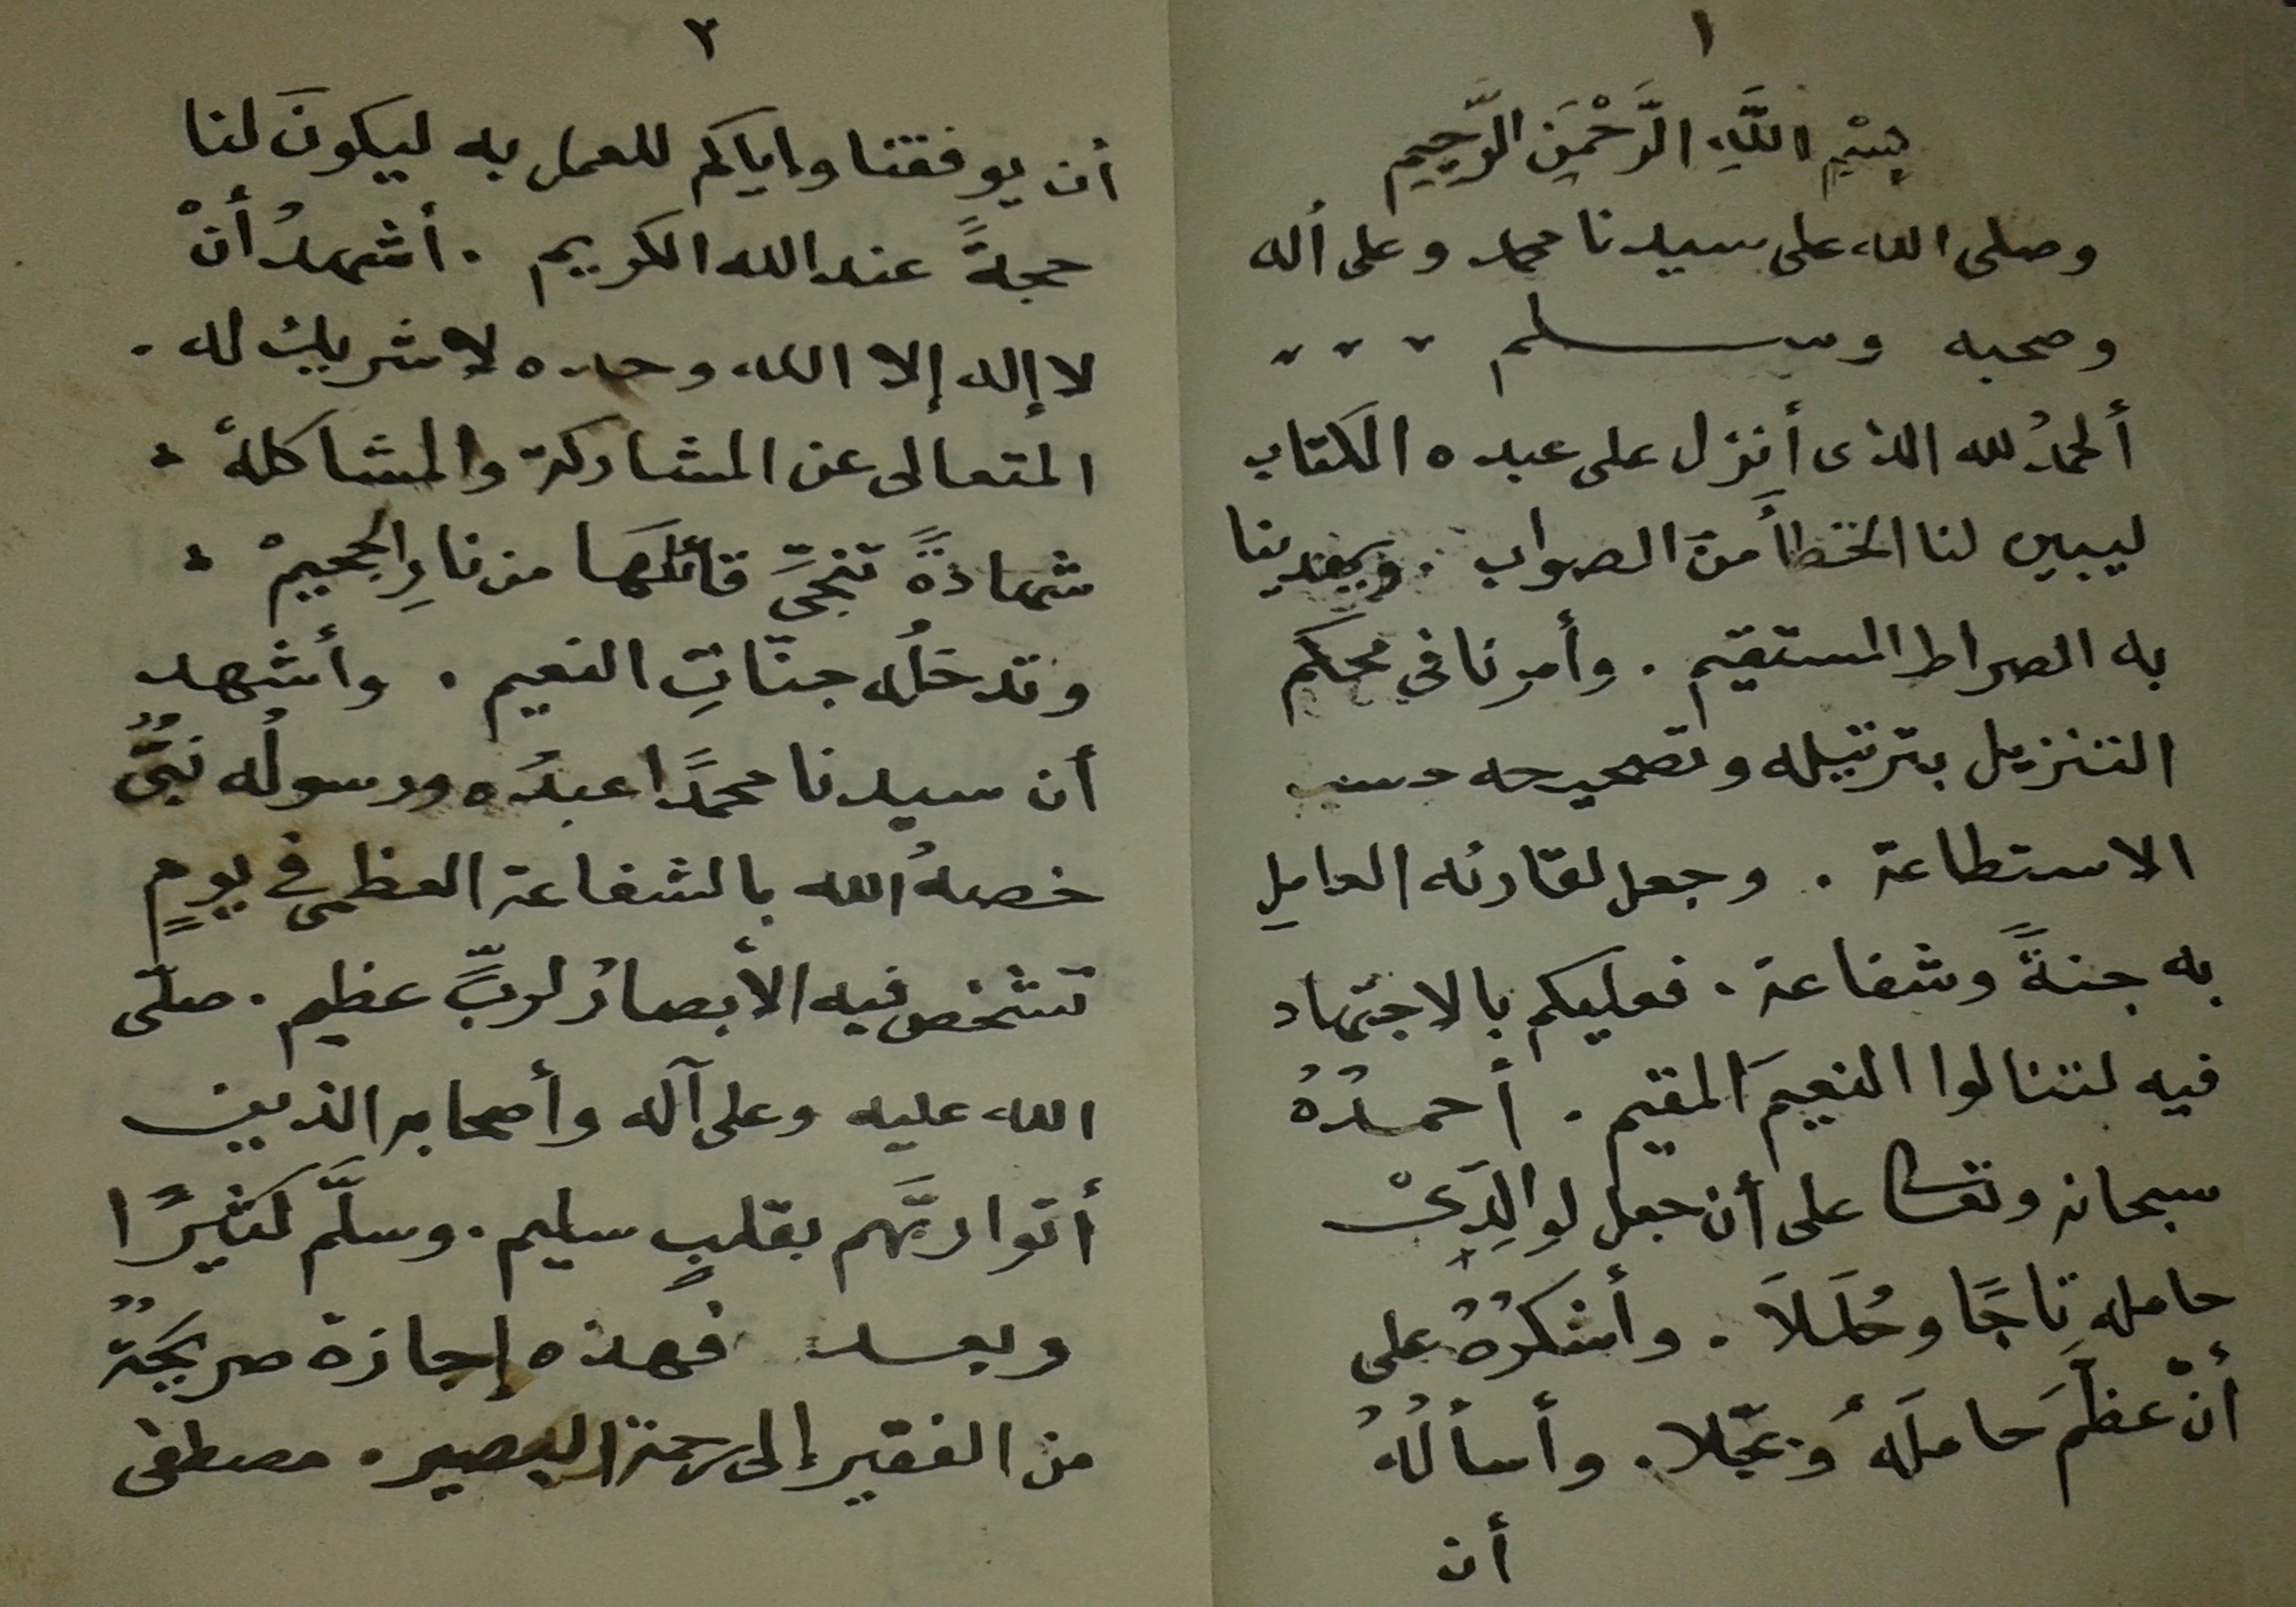 ١
بِسْمِ اللَّهِ الرَّحْمَنِ الرَّحِيمِ
وصلى الله على سيدنا محمد وعلى أله
وصحبه وسلم
ألحمدُ لله الذى أنزل على عبده الكتاب
ليبين لنا الخطأَ منَ الصواب . ويهدينا
به الصراط المستقيم . وأمرنا في محكم
التنزيل بترتيله وتصحيحه حسب
الاستطاعة . وجعل لقارئه العاملِ
به جنةً وشفاعة . فعليكم بالاجتهاد
فيه لتنالوا النعيمَ المقيم . أحمدُهُ
سبحانه وتعالى على أن جعل لوالِدَىْ
حاملِه تاجًا وحُلَلاَ . وأشكرُهُ على
أنْ عظَّمَ حاملَهُ وبجّلا . وأسألُهُ
أن
٢
أن يوفقنا وإياكم للعمل به ليكونَ لنا
حجةً عند الله الكريم . أشهدُ أنْ
لا إله إلا الله وحده لا شريك له .
المتعالى عن المشاركة والمشاكلهْ .
شهادةً تنجِّى قائلَهَا من نارِ الجحيمْ .
وتدخلُه جنّاتِ النعيم . وأشهد
أن سيدنا محمدًا عبدُه ورسولُه نبىٌّ
خصهُ الله بالشفاعة العظمى في يومٍ
تشخص فيه الأبصارُ لربٍّ عظيم . صلّى
الله عليه وعلى آله وأصحابه الذين
أتوا ربَّهم بقلبٍ سليم . وسلَّم كثيرًا
وبعد فهذه إجازة صريحةٌ
من الفقير إلى رحمة البصير . مصطفى